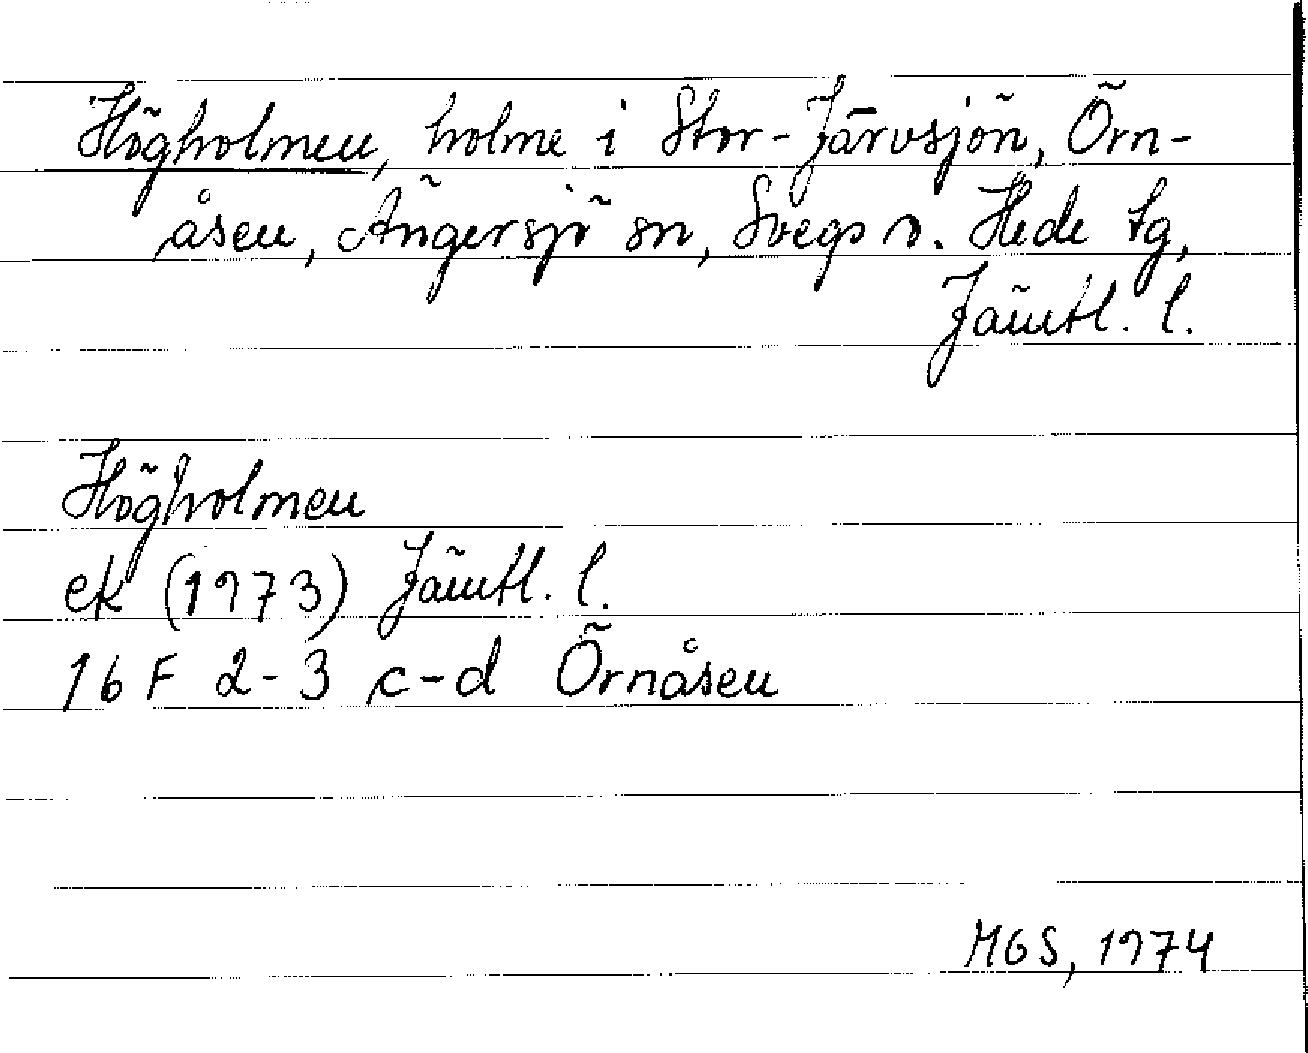 Högholmen, holme i Stor-Järvsjön, Örn-
åsen, Ängersjö sn, Svegs o. Hede tg,
Jämtl. l.
Högholmen
ek (1973) Jämtl. l.
16 F 2-3 c-d Örnåsen
MGS, 1974